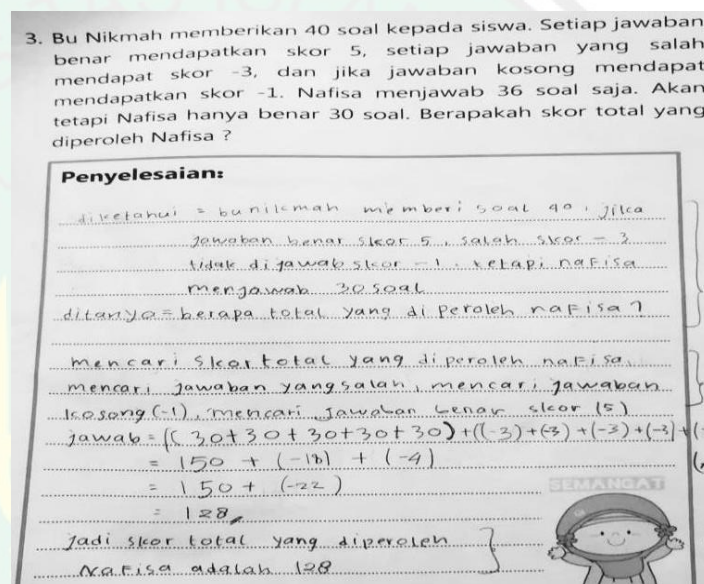 3. Bu Nikmah memberikan 40 soal kepada siswa. Setiap jawaban
benar mendapatkan skor 5, setiap jawaban yang salah
mendapat skor -3, dan jika jawaban kosong mendapat
mendapatkan skor -1. Nafisa menjawab 36 soal saja. Akan
tetapi Nafisa hanya benar 30 soal. Berapakah skor total yang
diperoleh Nafisa ?
Penyelesaian:
diketahui = bu nikmah memberi soal 40, jika
jawaban benar skor 5, salah skor - 3
tidak di jawab skor -1. tetapi nafisa
menjawab 30 soal
ditanya = berapa total yang di peroleh nafisa?
mencari skor total yang diperoleh nafisa
mencari jawaban yang salah, mencari jawaban
kosong (-1), mencari jawaban benar skor (5)
jawab = (( 30+30+30+30+30)+((-3)+(-3)+(-3)+(-3)+(-
= 150 + (-18) + (-4)
= 150 + (-22)
SEMANGAT
= 128
Jadi skor total yang diperoleh
Nafisa adalah 128